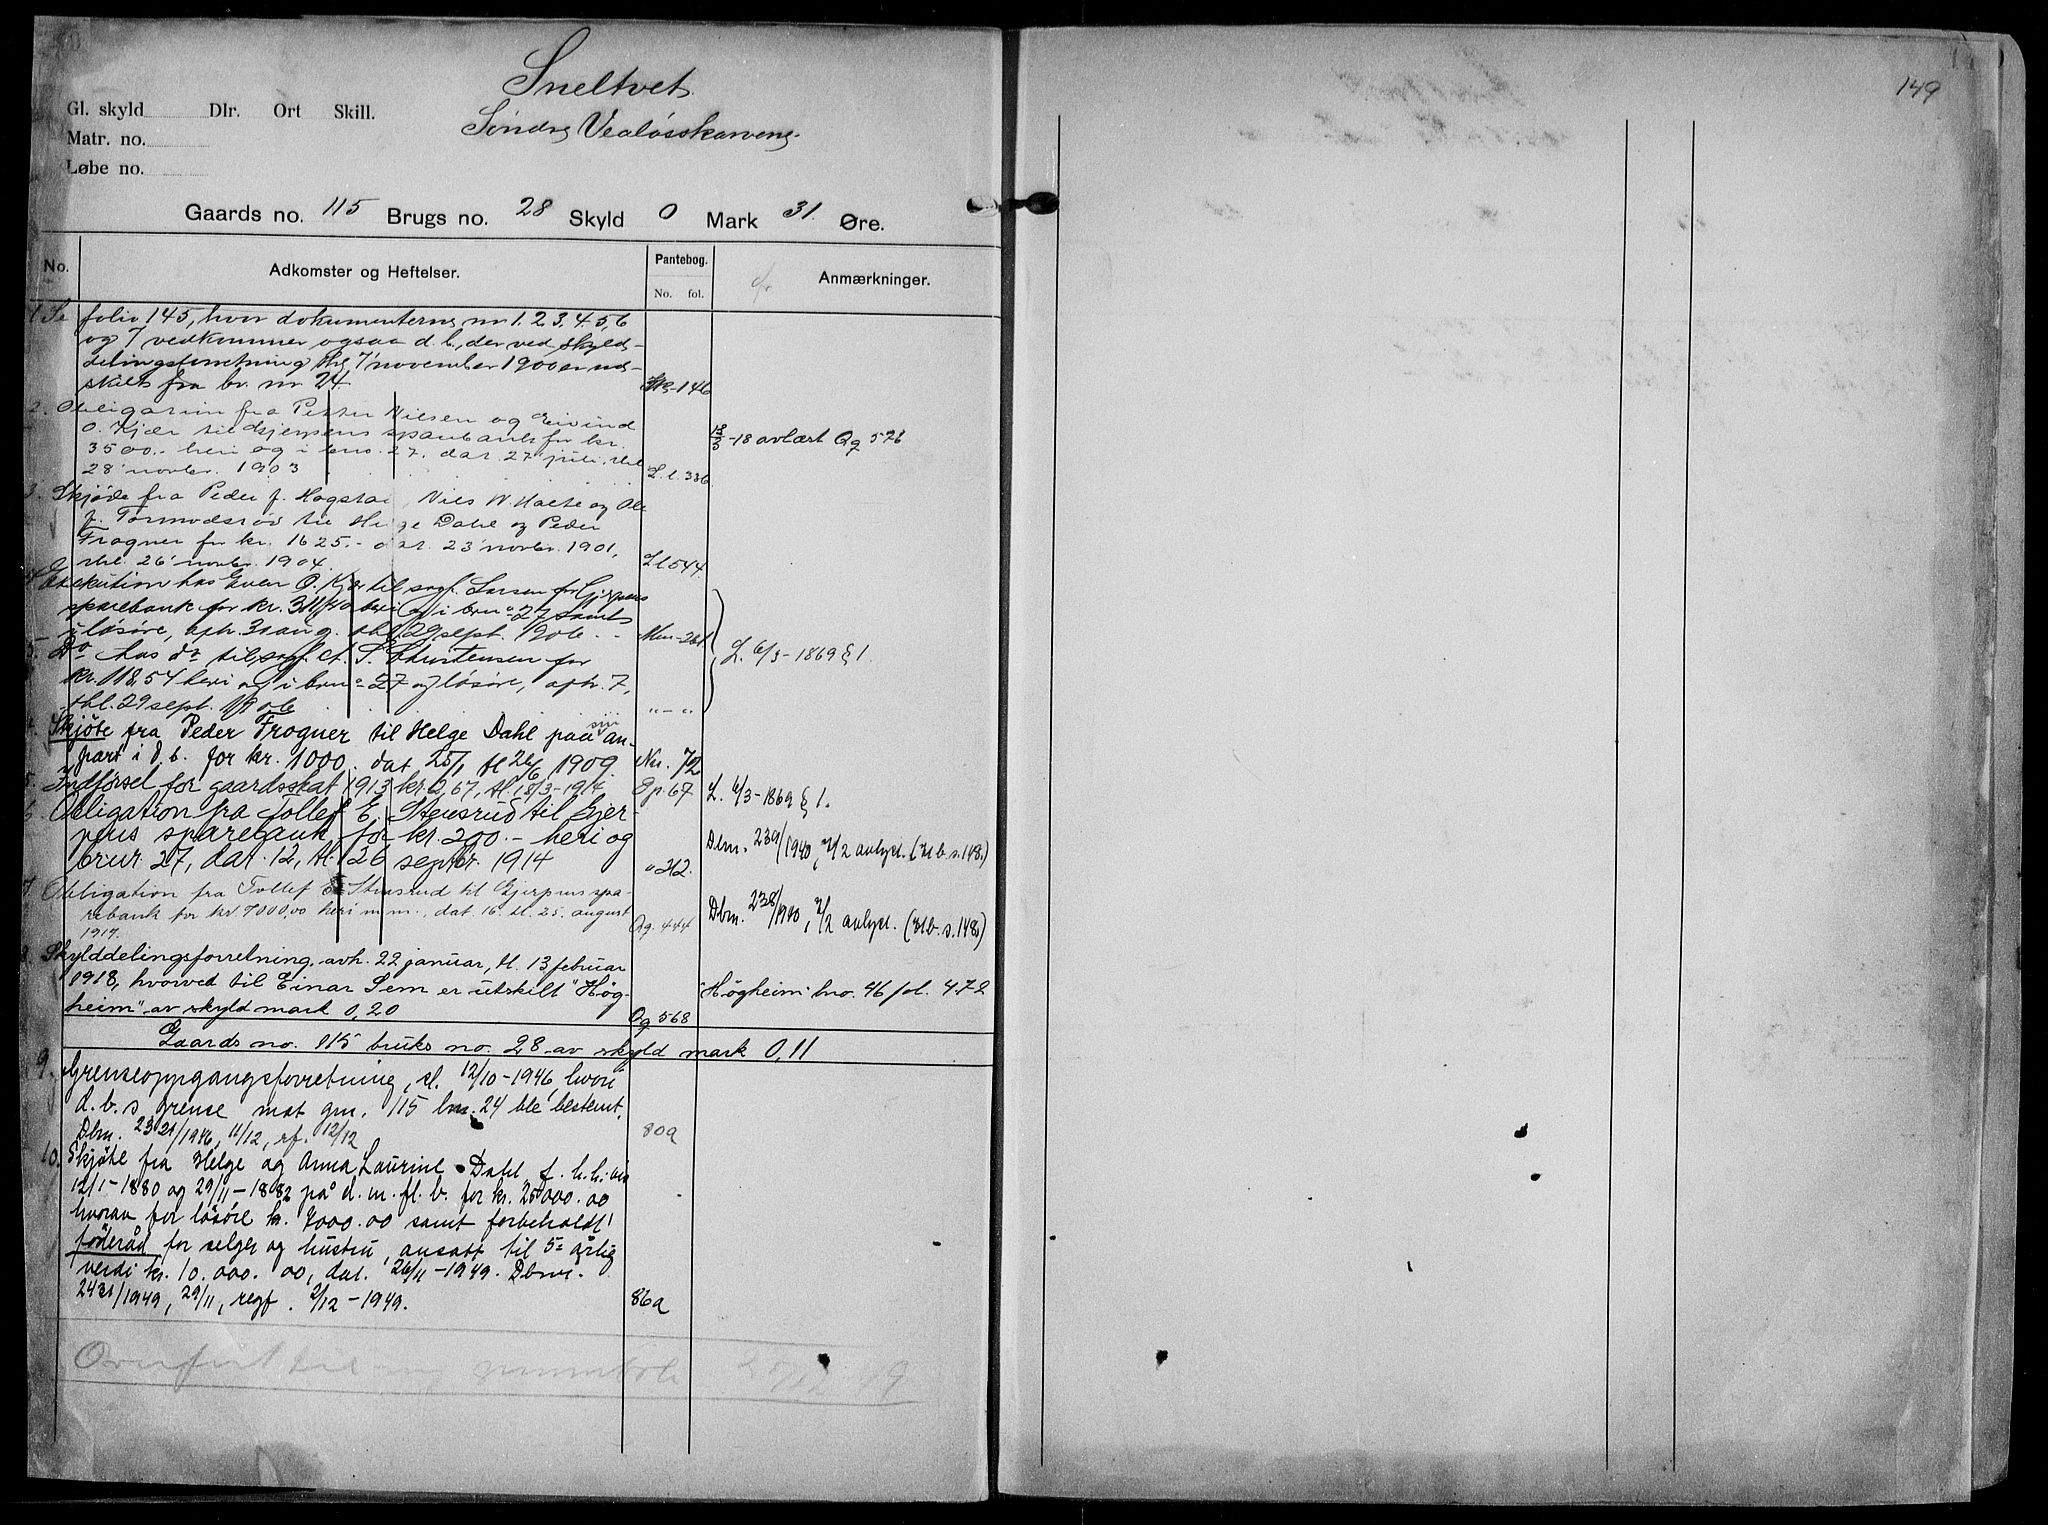 149
Sneltvet.
Søndre Vealøsskarvene
Gl. skyld Dlr. Ort Skill.
Matr. no.
Løbe no.
Gaards no. 115 Brugs no. 28 Skyld 0 Mark 31 Øre.
No. Adkomster og Heftelser. Pantebog. No. fol. Anmærkninger.
1 Se folio 145, hvor dokumenterne nr 1. 2. 3. 4. 5. 6
og 7 vedkommer ogsaa d. b., der ved skyld-
delingsforretning thl. 7 november 1900 er ud-
skilt fra br. nr 24. 146
2. Obligation fra Petter Nielsen og Eivind
O. Kjær til Gjerpens sparebank for kr.
3500.- heri og i bno. 27, dat. 27 juli, thl.
28 novbr. 1903 L. l. 336 18/3-18 avlæst Qg 576
3. Skjøde fra Peder J. Hogstad, Nils W. Holte og Ole
J. Tormodsrød til Helge Dahl og Peder
Frogner for kr. 1625.- dat. 23' novbr. 1901,
thl. 26' novbr. 1904. Ll 544
4 Exekution hos Even O. Kjær til sagf. Larsen for Gjerpens
sparebank for kr. 311,40 heri og i brno 27 samt
i løsøre, afh. 31 aug. thl. 29 sept. 1906. -
5. Do hos do til sagf. Chr. S. Christensen for
kr. 118.54 heri og i brno 27 og løsøre, afh. 7,
thl. 29 sept. 1906 " - " L. 6/3-1869 § 1.
4. Skjøte fra Peder Frogner til Helge Dahl paa sin an-
part i d. b. for kr. 1000. dat 25/1 tl 26/6 1909. Nn. 702
5. Indførsel for gaardsskat 1913 kr 2,67, tl. 18/3-1914 Qp. 67 L. 6/3-1869 § 1.
6. Obligation fra Tollef E. Stensrud til Gjer-
pens sparebank for kr. 200.- heri og
brnr. 27, dat. 12, tl. 26 septbr. 1914 " 212. Dbn. 239/1940, 2/2 avlyst. (Rtb. s. 148.)
7. Obligation fra Tollef E. Stensrud til Gjerpens spa-
rebank for kr. 7000,00 heri m.m., dat. 16. tl. 25. august
1917. Qg. 444 Dbn. 238/1940, 2/2 avlyst. (Rtb. s. 148)
8. Skylddelingsforretning avh. 22 januar, tl. 13 februar
1918, hvorved til Einar Sem er utskilt "Høg-
heim" av skyld mark 0,20 Qg 568 "Høgheim" bno. 46 fol. 472
Gaards no. 115 bruks no. 28 av skyld mark 0,11
9. Grenseoppgangsforretning, tl. 12/10-1946, hvori
d. b. s grense mot gnr. 115 bnr. 24 ble bestemt.
Dbn. 2321/1946, 11/12, rf. 12/12 80a
10. Skjøte fra Helge og Anna Laurine Dahl, f. h. h. vis
12/1-1880 og 29/11-1882 på d. m. fl. b. for kr. 25000.00
hvorav for løsøre kr. 7000.00 samt forbeholdt
føderåd for selger og hustru, ansatt til 5-årlig
verdi kr. 10.000.00, dat. 26/11-1949. Dbnr.
2431/1949, 29/11, regf. 2/12-1949. 86a
Overført til ny grunnbok